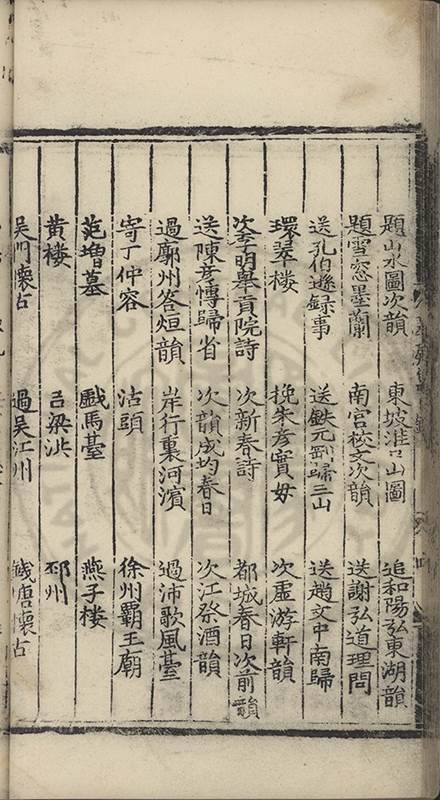 題山水圖次韻 東坡淮口山圖 追和陽弘東湖韻
題雪窓墨蘭 南宮校文次韻 送謝弘道理問
送孔伯遜録事 送鉄元剛歸三山 送趙文中南歸
環翠樓 挽朱彦實母 次虚游軒韻
次李明舉貢院詩 次新春詩 都城春日次前韻
送陳彦愽歸省 次韻成均春日 次江祭酒韻
過鄘州答烜韻 岸行裏河濱 過沛歌風臺
寄丁仲容 沽頭 徐州覇王廟
范增墓 戲馬臺 燕子楼
黄楼 吕梁洪 邳州
吴門懷古 過吴江州 錢唐懷古